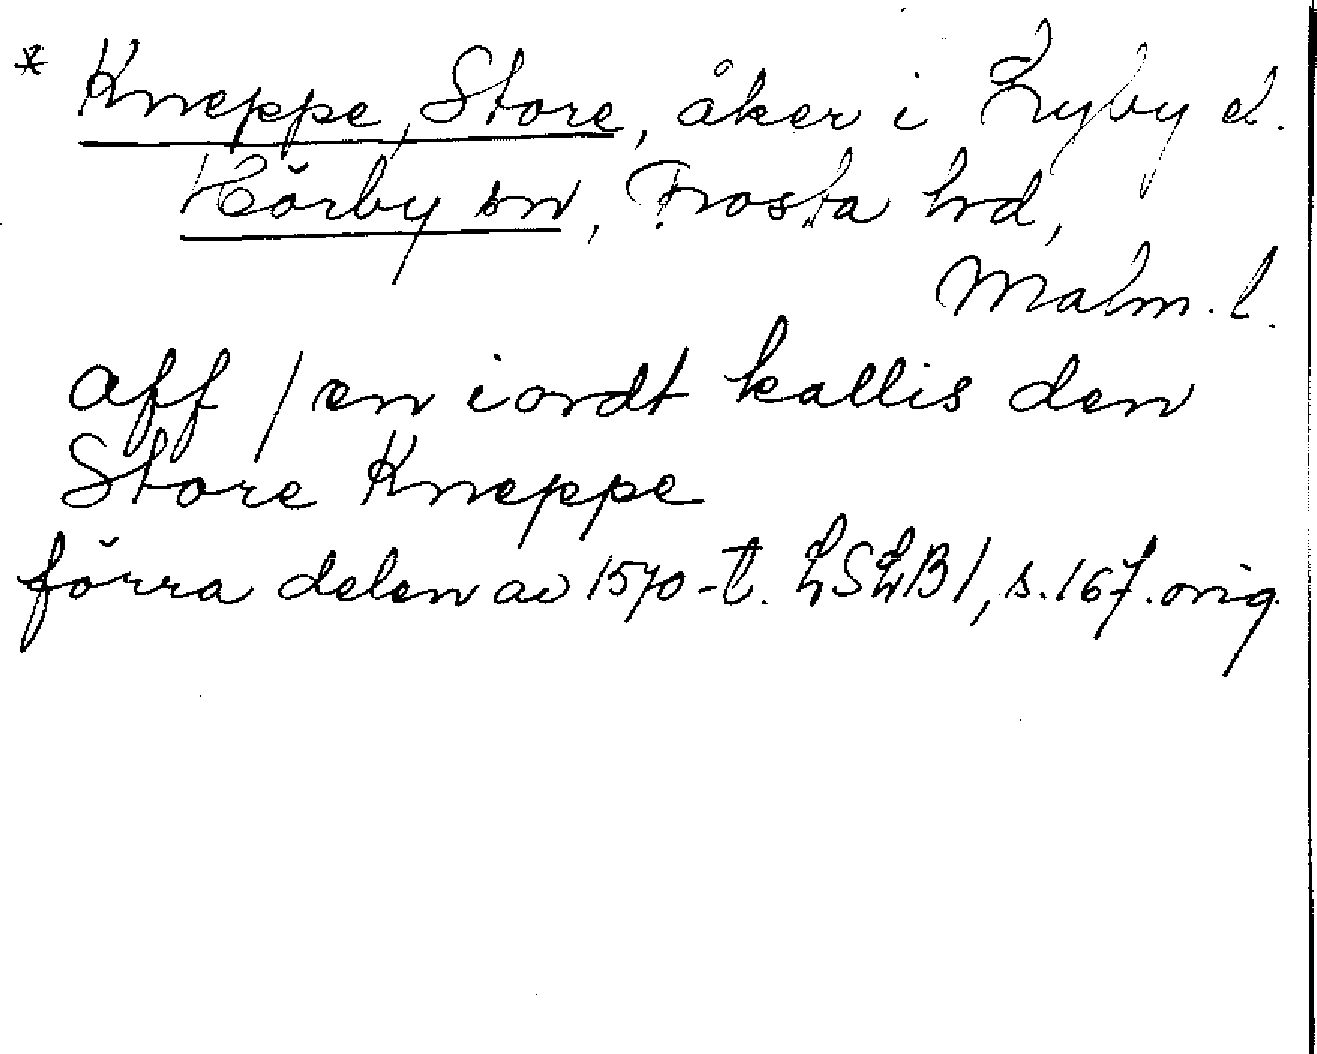 * Kneppe, Store, åker i Lyby el.
Hörby sn, Frosta hrd,
Malm. l.
aff / en iordt kallis den
Store Kneppe
förra delen av 1570-t. LSLB1, s. 167. orig.